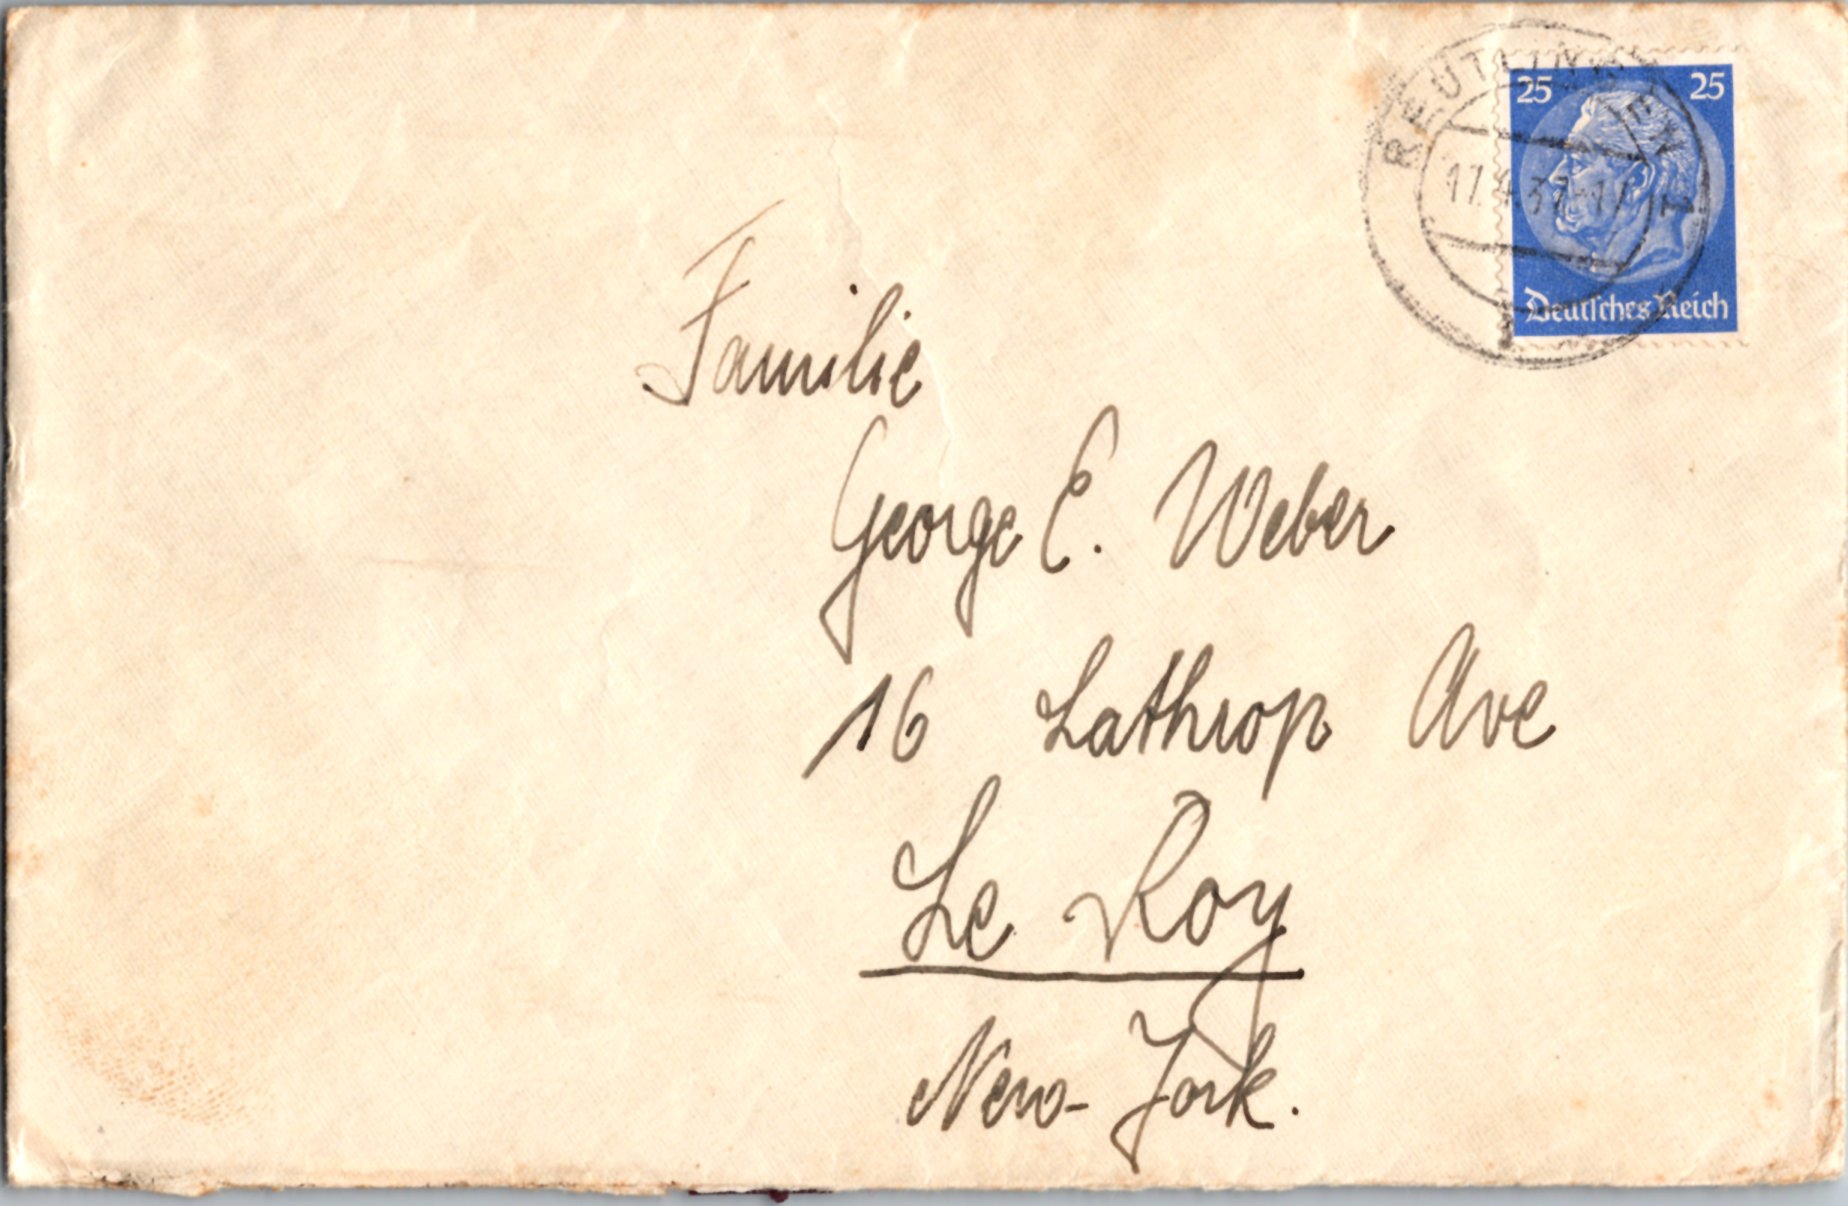 REUTLINGEN
17.4.37
1
25 25
Deutsches Reich
Familie
George E. Weber
16 Lathrop Ave
Le Roy
New-York.